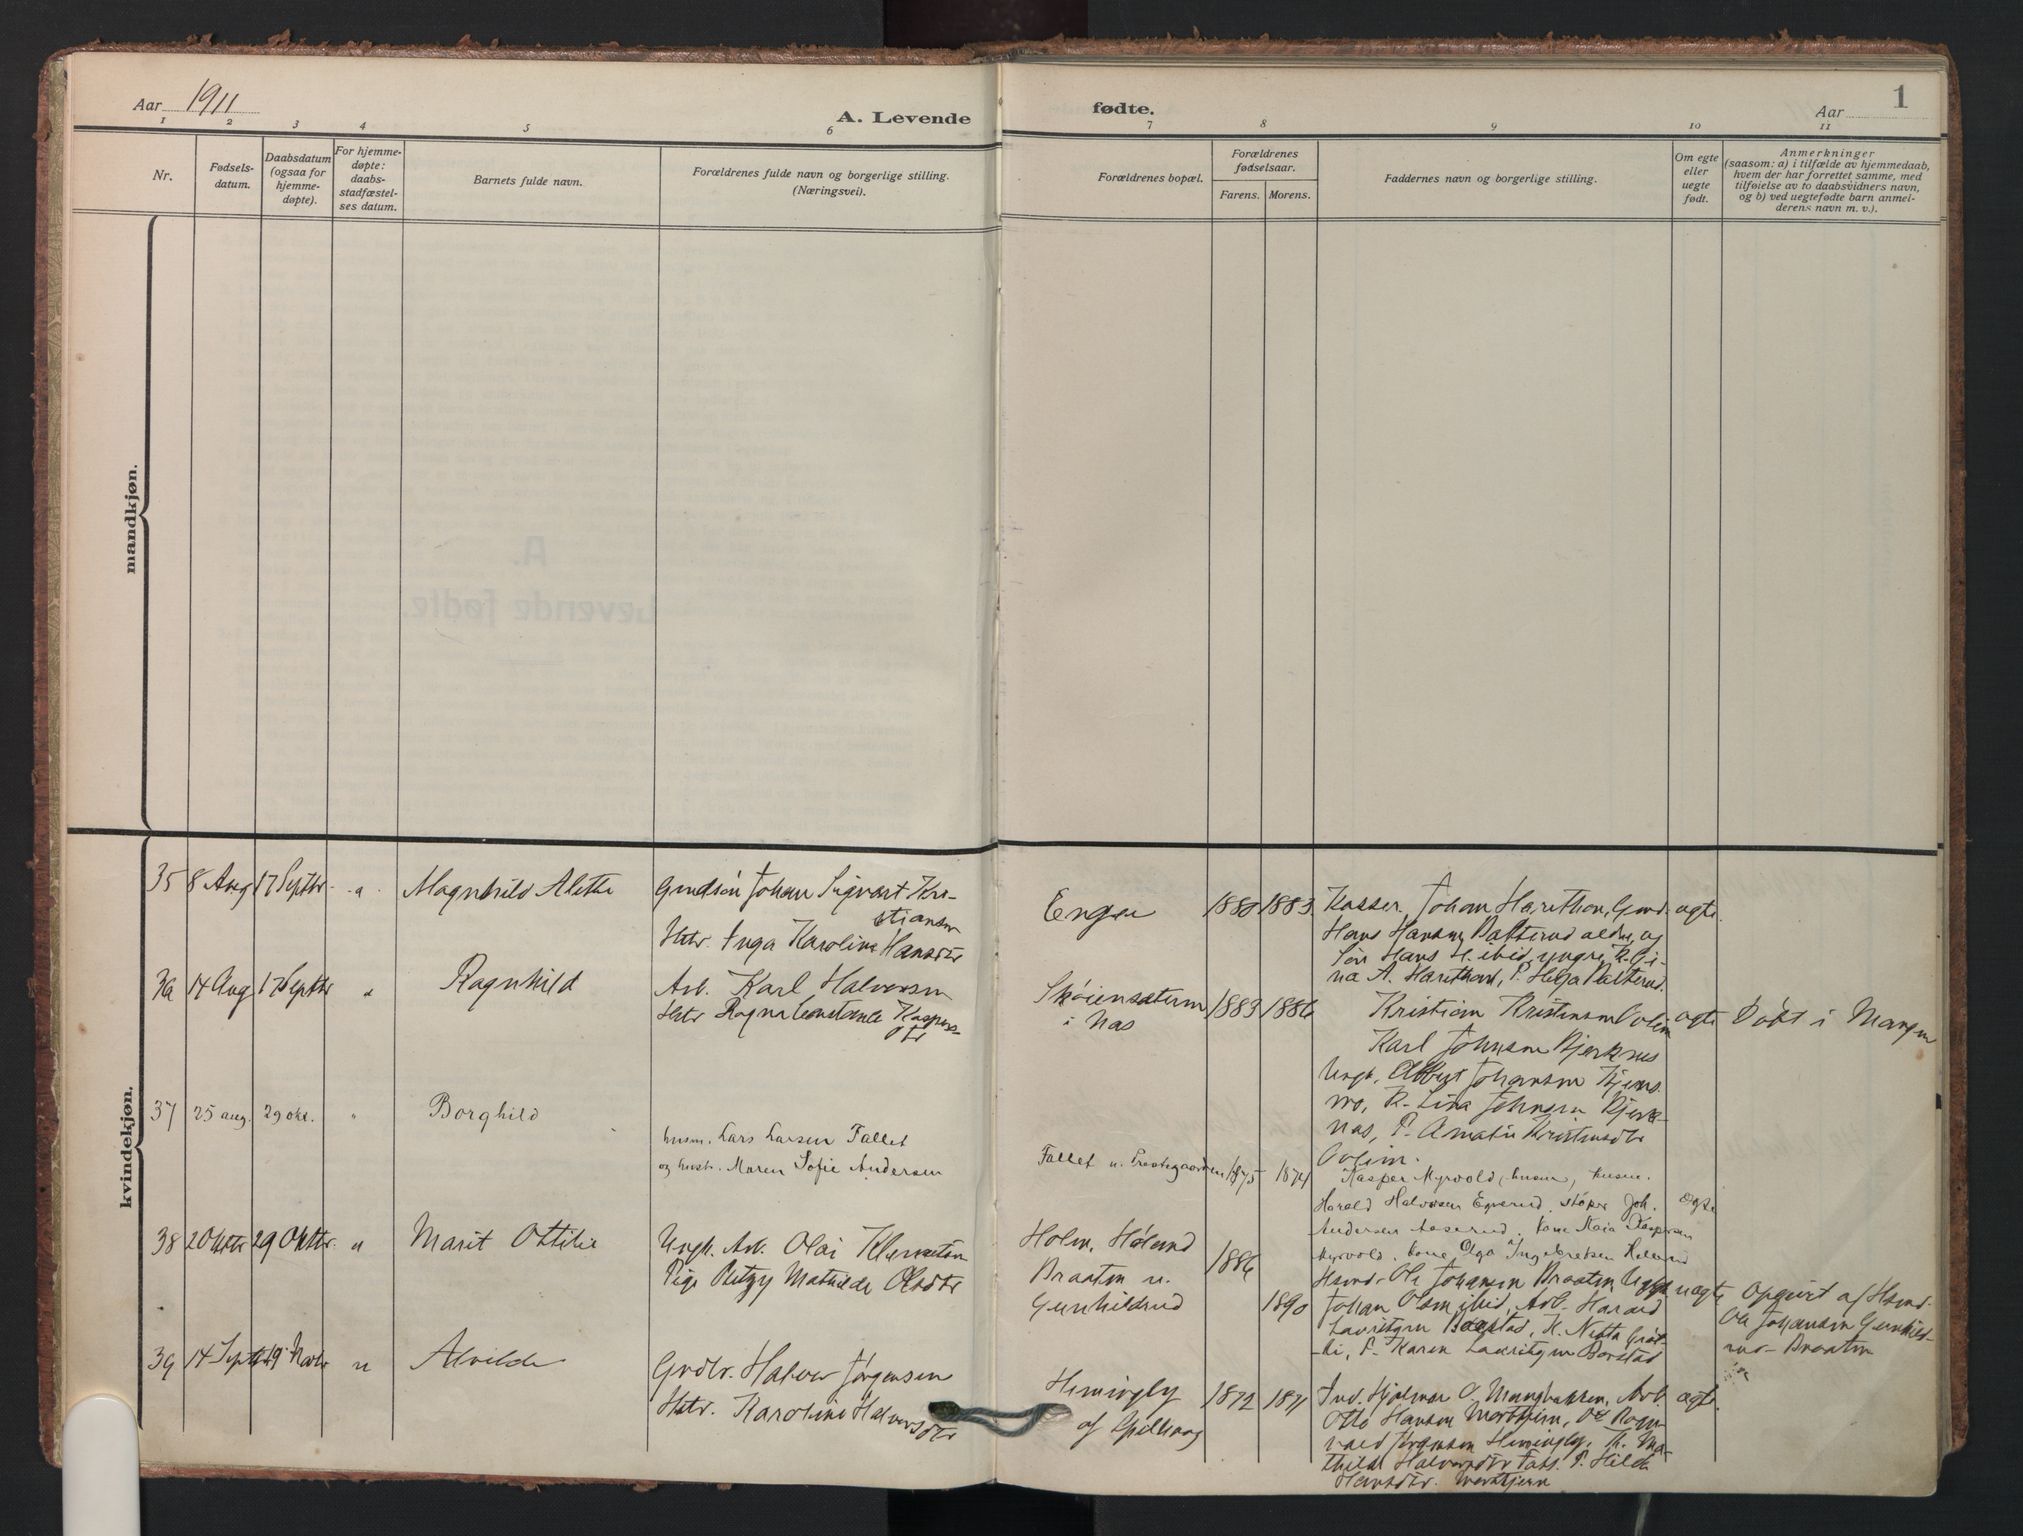 Aar 1911
A. Levende fødte.
Aar
1
1 2 3 4 5 6 7 8 9 10 11
Nr.
Fødsels-
datum.
Daabsdatum
(ogsaa for
hjemme-
døpte).
For hjemme-
døpte:
daabs-
stadfæstel-
ses datum.
Barnets fulde navn.
Forældrenes fulde navn og borgerlige stilling.
(Næringsvei).
Forældrenes bopæl.
Forældrenes
fødselsaar.
Farens. Morens.
Faddernes navn og borgerlige stilling.
Om egte
eller
uegte
født.
Anmerkninger
(saasom: a) i tilfælde av hjemmedaab,
hvem der har forrettet samme, med
tilføielse av to daabsvidners navn,
og b) ved uegtefødte barn anmel-
derens navn m. v.).
mandkjøn.
kvindekjøn.
35 8 Aug 17 Septbr. Magnhild Alette
Johan Sigvart Kri-
stiansen
Hstr. Inga Karoline Hansdtr
Enger
1880 1883
Kasser. Johan Harethon, Gmd.
Hans Hansen Dalterud ældre, og
Søn Hans H. ibid, yngre, K. Gi-
na A. Harethon, P. Helga Dalterud.
ægte.
36 14 Aug 17 Septbr Ragnhild
Arb. Karl Halvorsen
Hstr Ragna Constance Kaspers-
dtr
Skøiensæteren
i Nas
1883 1886
Kristian Kristiansen
Karl Johnsen Bjerknes
Ungk. Albert Johansen
K. Lina Johnsen Bjerk-
nas, P.
ægte
Døbt i Mangen
37 25 aug. 29 okt. " Borghild
husm. Lars Larsen Fallet
og hust. Maren Sofie Andersen
Fallet u. Prestegaarden
1875 1874
Kasper Myrvold, husm, husm.
Harald Halvorsen Egerud, støper Joh.
Andersen Aaserud, kone Maia Kaspersen
Myrvold, kone Olga Ingebretsen
ægte
38 2 Oktbr 29 Oktbr. Marit Ottilie
Ungk. Arb. Olai Klemetsen
Pige Betzy Mathilde Olsdtr
Holm, Høland
Braaten u.
Gunhildrud
1886
1890
Hsmd. Ole Johansen Braaten, Ungk.
Johan Olsen ibid, Arb. Harald
Lauritzen Borstad, K. Netta
P. Karen Lauritzen Borstad
uægte
Opgivet af Hsmd.
Ole Johansen Gunhild-
rud-Braaten
39 14 Septbr 19 Novbr Alvilde
Grdbr. Halvor Jørgensen
Hstr. Karoline Halvorsdtr
Hemingby
af
1872 1871
Ind. Hjalmar O. Mangbakken, Arb.
Otto Hansen
Ragn-
vald Jørgensen Hemingby, K. Ma-
thilde Halvorsdtr P. Hilda
Hansdtr.
ægte.
A.
Levende fødte.